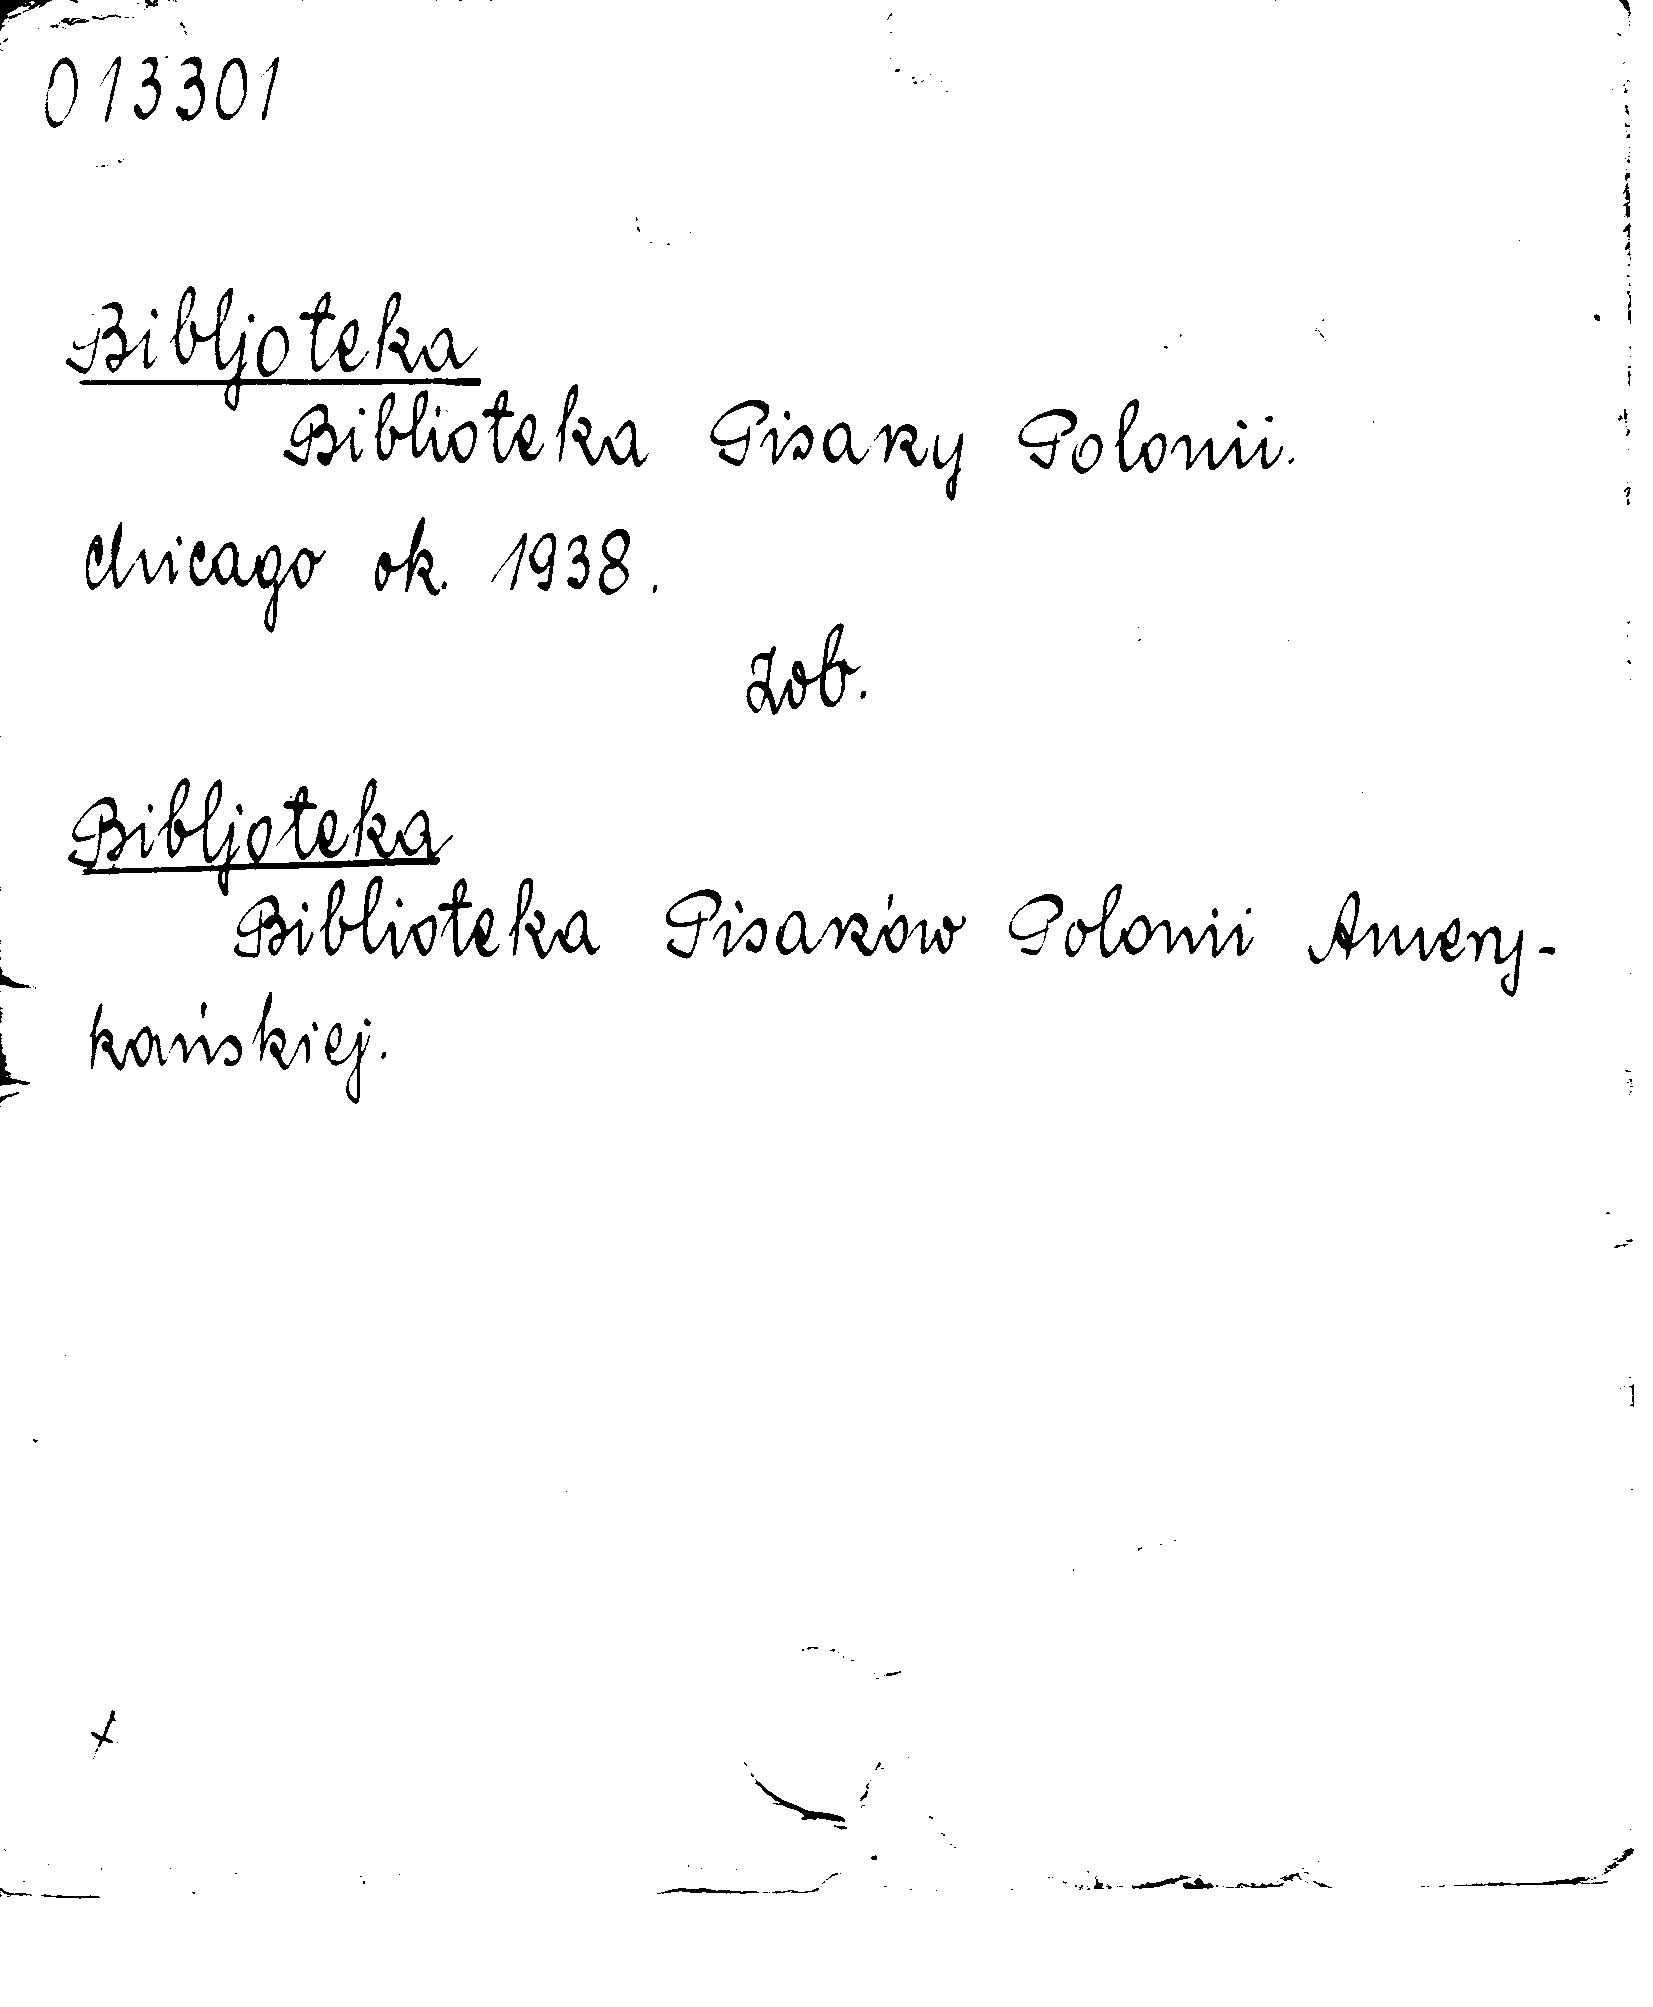 013301
Bibljoteka
Biblioteka Pisarzy Polonii.
Chicago ok. 1938.
Zob.
Bibljoteka
Biblioteka Pisarzów Polonii Amery-
kańskiej.
x